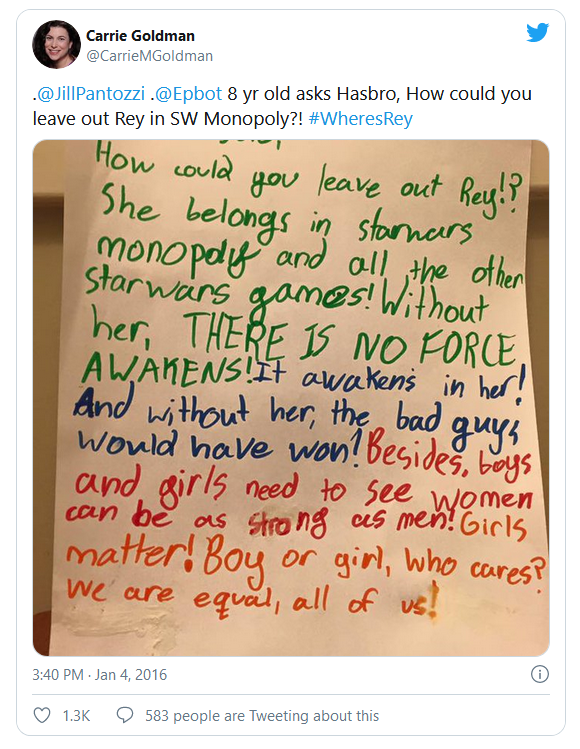 Carrie Goldman
@CarrieMGoldman
.@JillPantozzi .@Epbot 8 yr old asks Hasbro, How could you
leave out Rey in SW Monopoly?! #WheresRey
How could you leave out Rey!?
She belongs in starwars
monopoly and all the other
starwars games! Without
her, THERE IS NO FORCE
AWAKENS! It awakens in her!
And without her, the bad guys
would have won! Besides, boys
and girls need to see women
can be as strong as men! Girls
matter! Boy or girl, who cares?
We are equal, all of us!
3:40 PM · Jan 4, 2016
1.3K 583 people are Tweeting about this